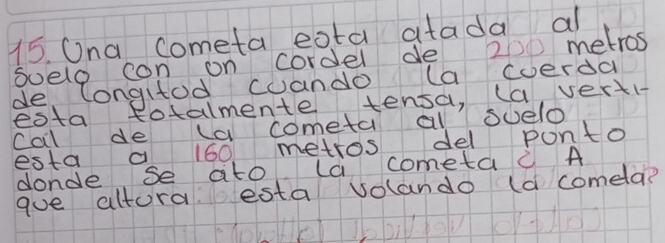 15. Una cometa esta atada al
suelo con un cordel de 200 metros
de longitud cuando la cuerda
esta totalmente tensa, la verti-
cal de la cometa al suelo
esta a 160 metros del punto
donde se ato la cometa ¿ A
que altura esta volando la cometa?